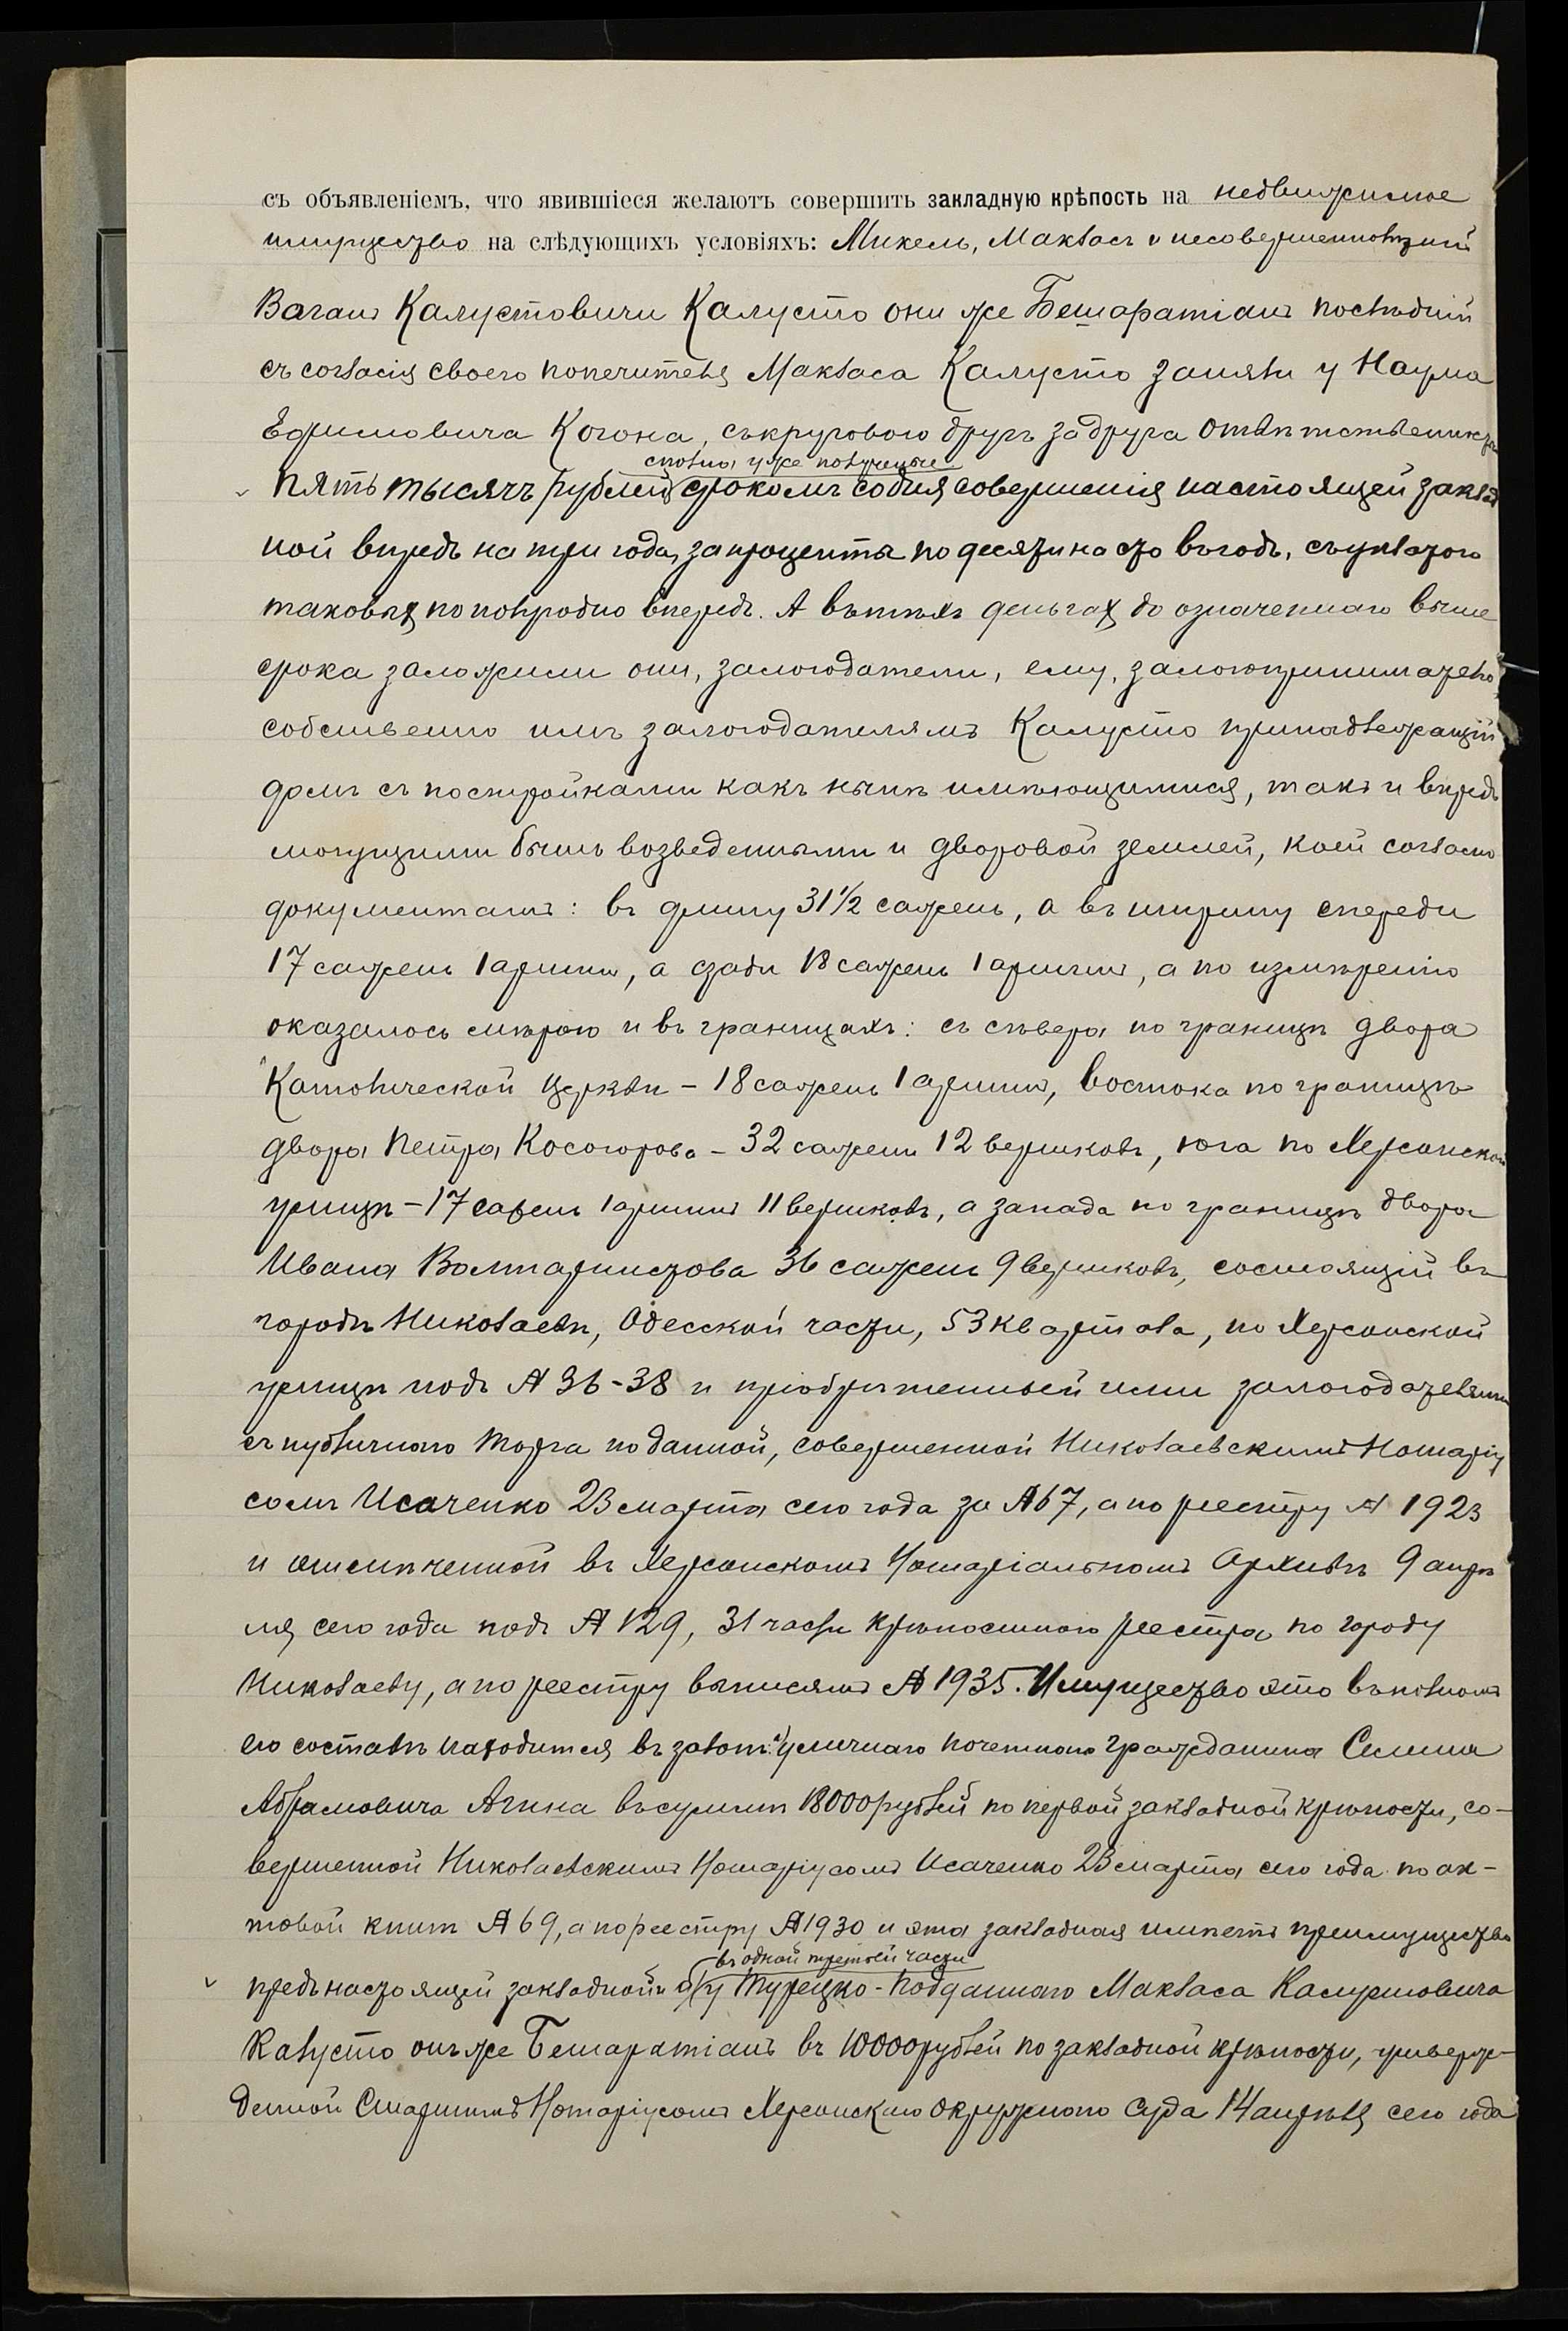 съ объявленіемъ, что явившіеся желаютъ совершить закладную крѣпость на недвижимое
имущество на слѣдующихъ условіяхъ: Микель, Макласъ и несовершеннолѣтній
Ваганъ Калустовичи Калусто они же Бешаратіанъ послѣдній
съ согласія своего попечителя Макласа Калусто заняли у Наума
Ефимовича Когона, съ круговою другъ за друга отвѣтственностью
сполна уже полученые
пять тысячъ рублей срокомъ со дня совершенія настоящей заклад
ной впредь на три года, за проценты по десяти на сто въ годъ, съ уплатою
таковыхъ по полугодно впередъ. А въ тѣхъ деньгахъ до означеннаго выше
срока заложили они, залогодатели, ему, залогопринимателю
собственно имъ залогодателямъ Калусто принадлежащій
домъ съ постройками какъ нынѣ имѣющимися, такъ и впредь
могущими быть возведенными и дворовой землей, коей согласно
документамъ: въ длину 31½ сажень, а въ ширину спереди
17 сажень 1 аршинъ, а сзади 18 сажень 1 аршинъ, а по измѣренію
оказалось мѣрою и въ границахъ: съ сѣвера по границѣ двора
Католической церкви - 18 сажень 1 аршинъ, востока по границѣ
двора Петра Косогорова - 32 сажени 12 вершковъ, юга по Херсонской
улицѣ - 17 сажень 1 аршинъ 11 вершковъ, а запада по границѣ двора
Ивана 36 сажень 9 вершковъ, состоящій въ
городѣ Николаевѣ, Одесской части, 53 квартала, по Херсонской
улицѣ подъ № 36-38 и пріобрѣтенный ими залогодателями
съ публичнаго торга по данной, совершенной Николаевскимъ Нотаріу
сомъ Исаченко 23 марта сего года за № 67, а по реестру № 1923
и отмѣченной въ Херсонскомъ Нотаріальномъ Архивѣ 9 апрѣ
ля сего года подъ № 129, 31 части крѣпостного реестра по городу
Николаеву, а по реестру выписямъ № 1935. Имущество это въ полномъ
его составѣ находится въ залогѣ: 1) у личнаго почетнаго гражданина Симы
Абрамовича Агина въ суммѣ 18000 рублей по первой закладной крѣпости, со-
вершенной Николаевскимъ Нотаріусомъ Исаченко 23 марта сего года по ак-
товой книгѣ № 69, а по реестру № 1930 и эта закладная имѣетъ преимущество
въ одной третьей части
предъ настоящей закладной и 2) у Турецко-подданнаго Макласа Калустовича
Калусто онъ же Бешаратіанъ въ 10000 рублей по закладной крѣпости, утверж-
денной Старшимъ Нотаріусомъ Херсонскаго Окружного Суда 14 апрѣля сего года